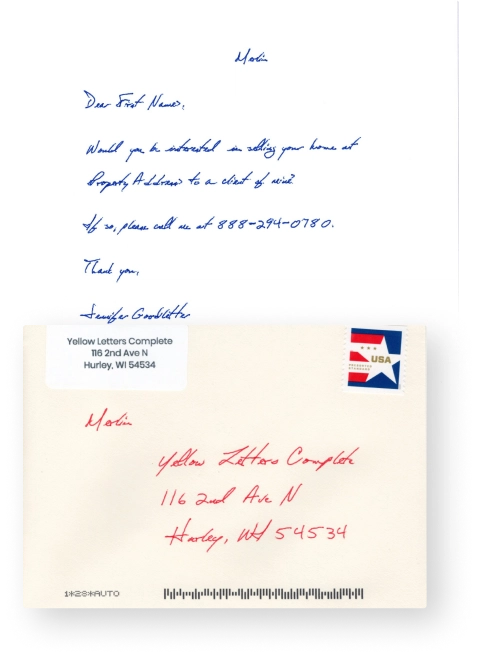 Merlin
Dear First Name>,
Would you be interested in selling your home at
Property Address to a client of mine?
If so, please call me at 888-294-0780.
Thank you,
Jennifer Goodletter
Yellow Letters Complete
116 2nd Ave N
Hurley, WI 54534
★★★
USA
PRESORTED
STANDARD
Merlin
Yellow Letters Complete
116 2nd Ave N
Hurley, WI 54534
1*28*AUTO